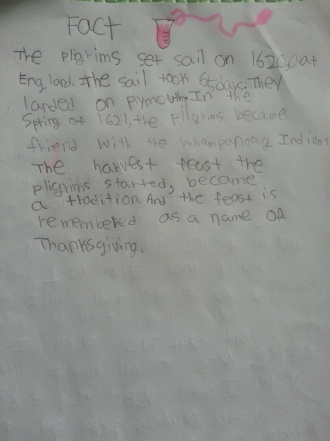 Fact
The plgrims set sail on 1620,at
England. The sail took 65days. They
landed on plymouth. In the
Spring of 1621, the pilgrims became
friend with the whamponoag Indians
The harvest feast the
pligrims started, become
a tradition. And the feast is
remembered as a name of
Thanksgiving.